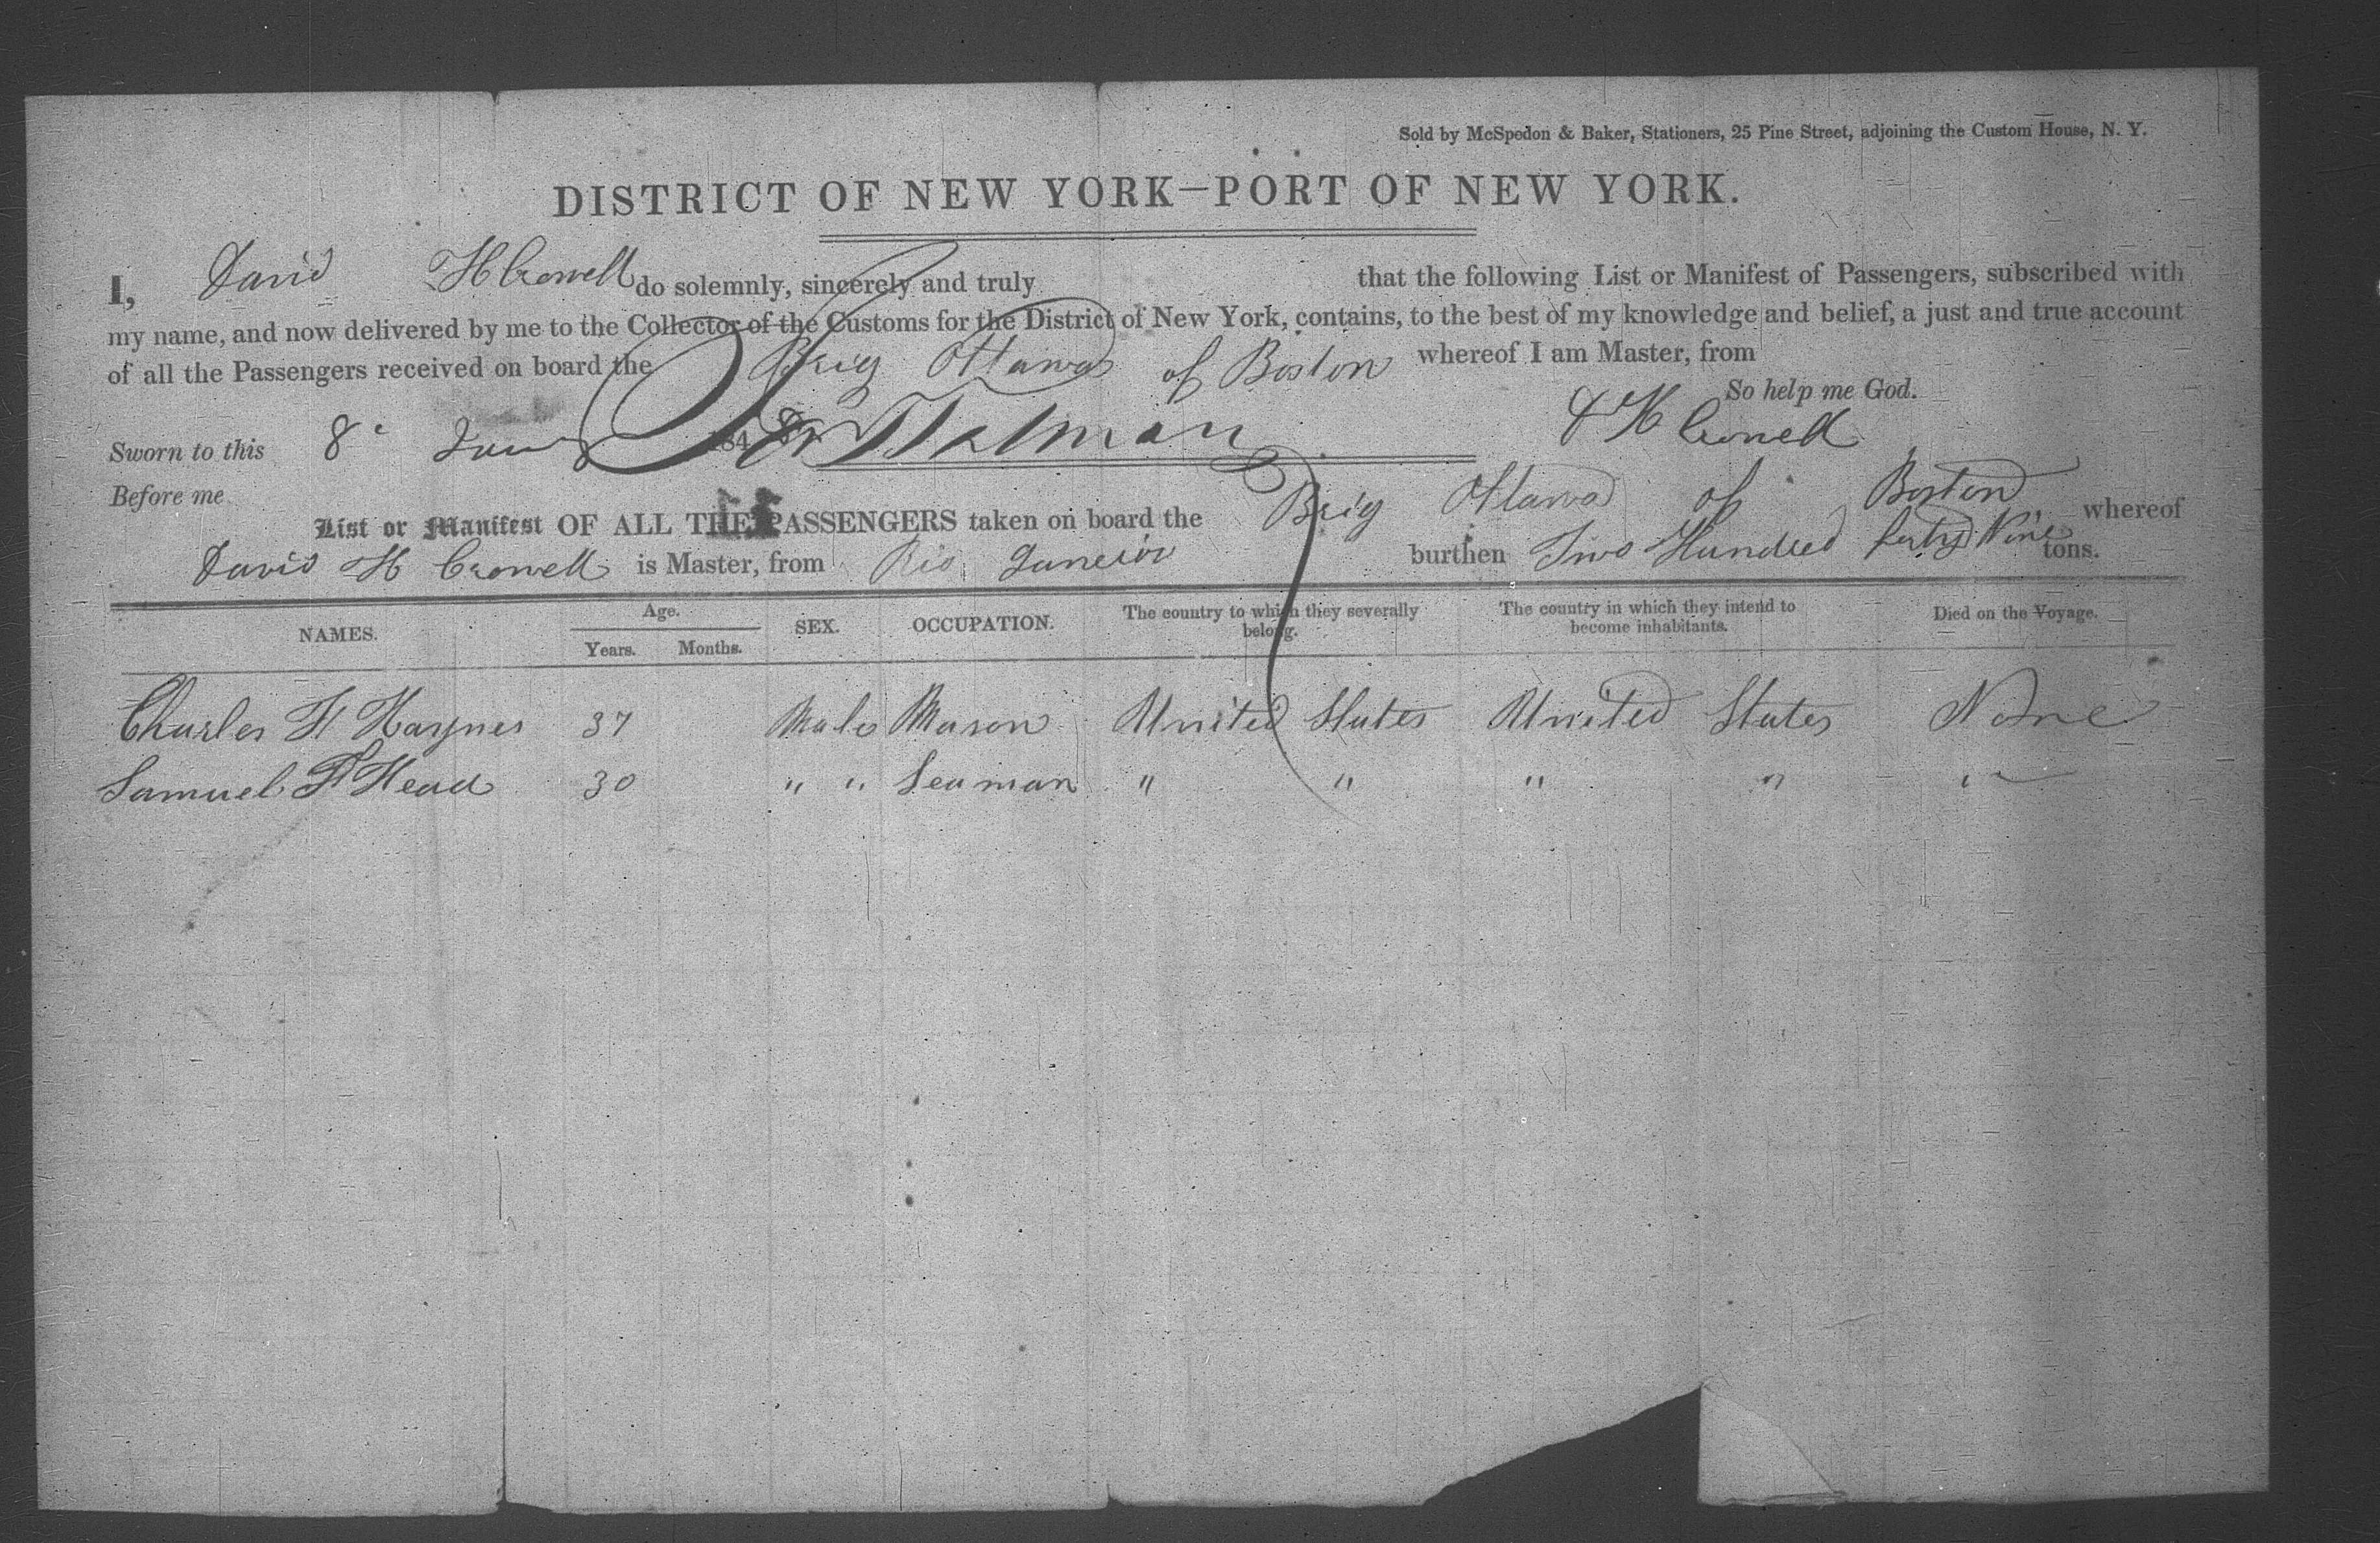 Sold by McSpedon & Baker, Stationers, 25 Pine Street, adjoining the Custom House, N. Y.
DISTRICT OF NEW YORK—PORT OF NEW YORK.
I, David H Crowell do solemnly, sincerely and truly that the following List or Manifest of Passengers, subscribed with
my name, and now delivered by me to the Collector of the Customs for the District of New York, contains, to the best of my knowledge and belief, a just and true account
of all the Passengers received on board the Brig Ottawa of Boston whereof I am Master, from
So help me God.
Sworn to this 8 184 Talman D H Crowell
Before me
List or Manifest OF ALL THE PASSENGERS taken on board the Brig Ottawa of Boston whereof
David H Crowell is Master, from Rio Janeiro burthen Two Hundred forty Nine tons.
NAMES. Age. Years. Months. SEX. OCCUPATION. The country to which they severally belong. The country in which they intend to become inhabitants. Died on the Voyage.
Charles H Haynes 37 Male Mason United States United States None
Samuel F Head 30 " " Seaman " " " " "